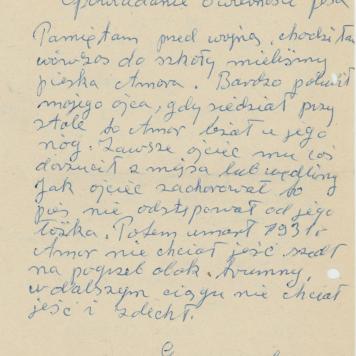 Opowiadanie o wierności psa
Pamiętam przed wojną, chodziłam
wówczas do szkoły mieliśmy
pieska Amora. Bardzo polubił
mojego ojca, gdy siedział przy
stole to Amor leżał u jego
nóg. Zawsze ojciec mu coś
dorzucił z mięsa lub wędliny
Jak ojciec zachorował to
pies nie odstępował od jego
łóżka. Potem umarł 1931 r.
Amor nie chciał jeść, szedł
na pogrzeb obok trumny,
w dalszym ciągu nie chciał
jeść i zdechł.